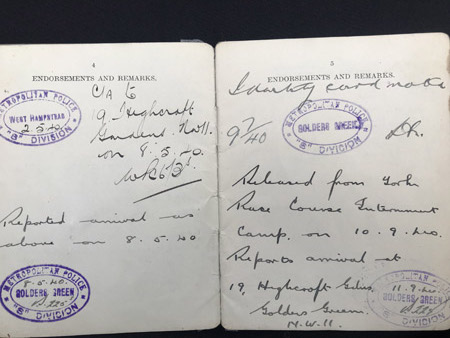 4
ENDORSEMENTS AND REMARKS.
METROPOLITAN POLICE
WEST HAMPSTEAD
2.5.40
"S" DIVISION
C/A to
19 Highcroft
Gardens N.W.11.
on 8.5.40.
Reported arrival as
above on 8.5.40
METROPOLITAN POLICE
8.5.40.
GOLDERS GREEN
"S" DIVISION
5
ENDORSEMENTS AND REMARKS.
Identity card noted
9/7/40
METROPOLITAN POLICE
GOLDERS GREEN
"S" DIVISION
Released from York
Race Course Internment
Camp, on 10.9.40.
Reports arrival at
19, Highcroft Gdns,
Golders Green.
N.W.11
METROPOLITAN POLICE
11.9.40
GOLDERS GREEN
"S" DIVISION